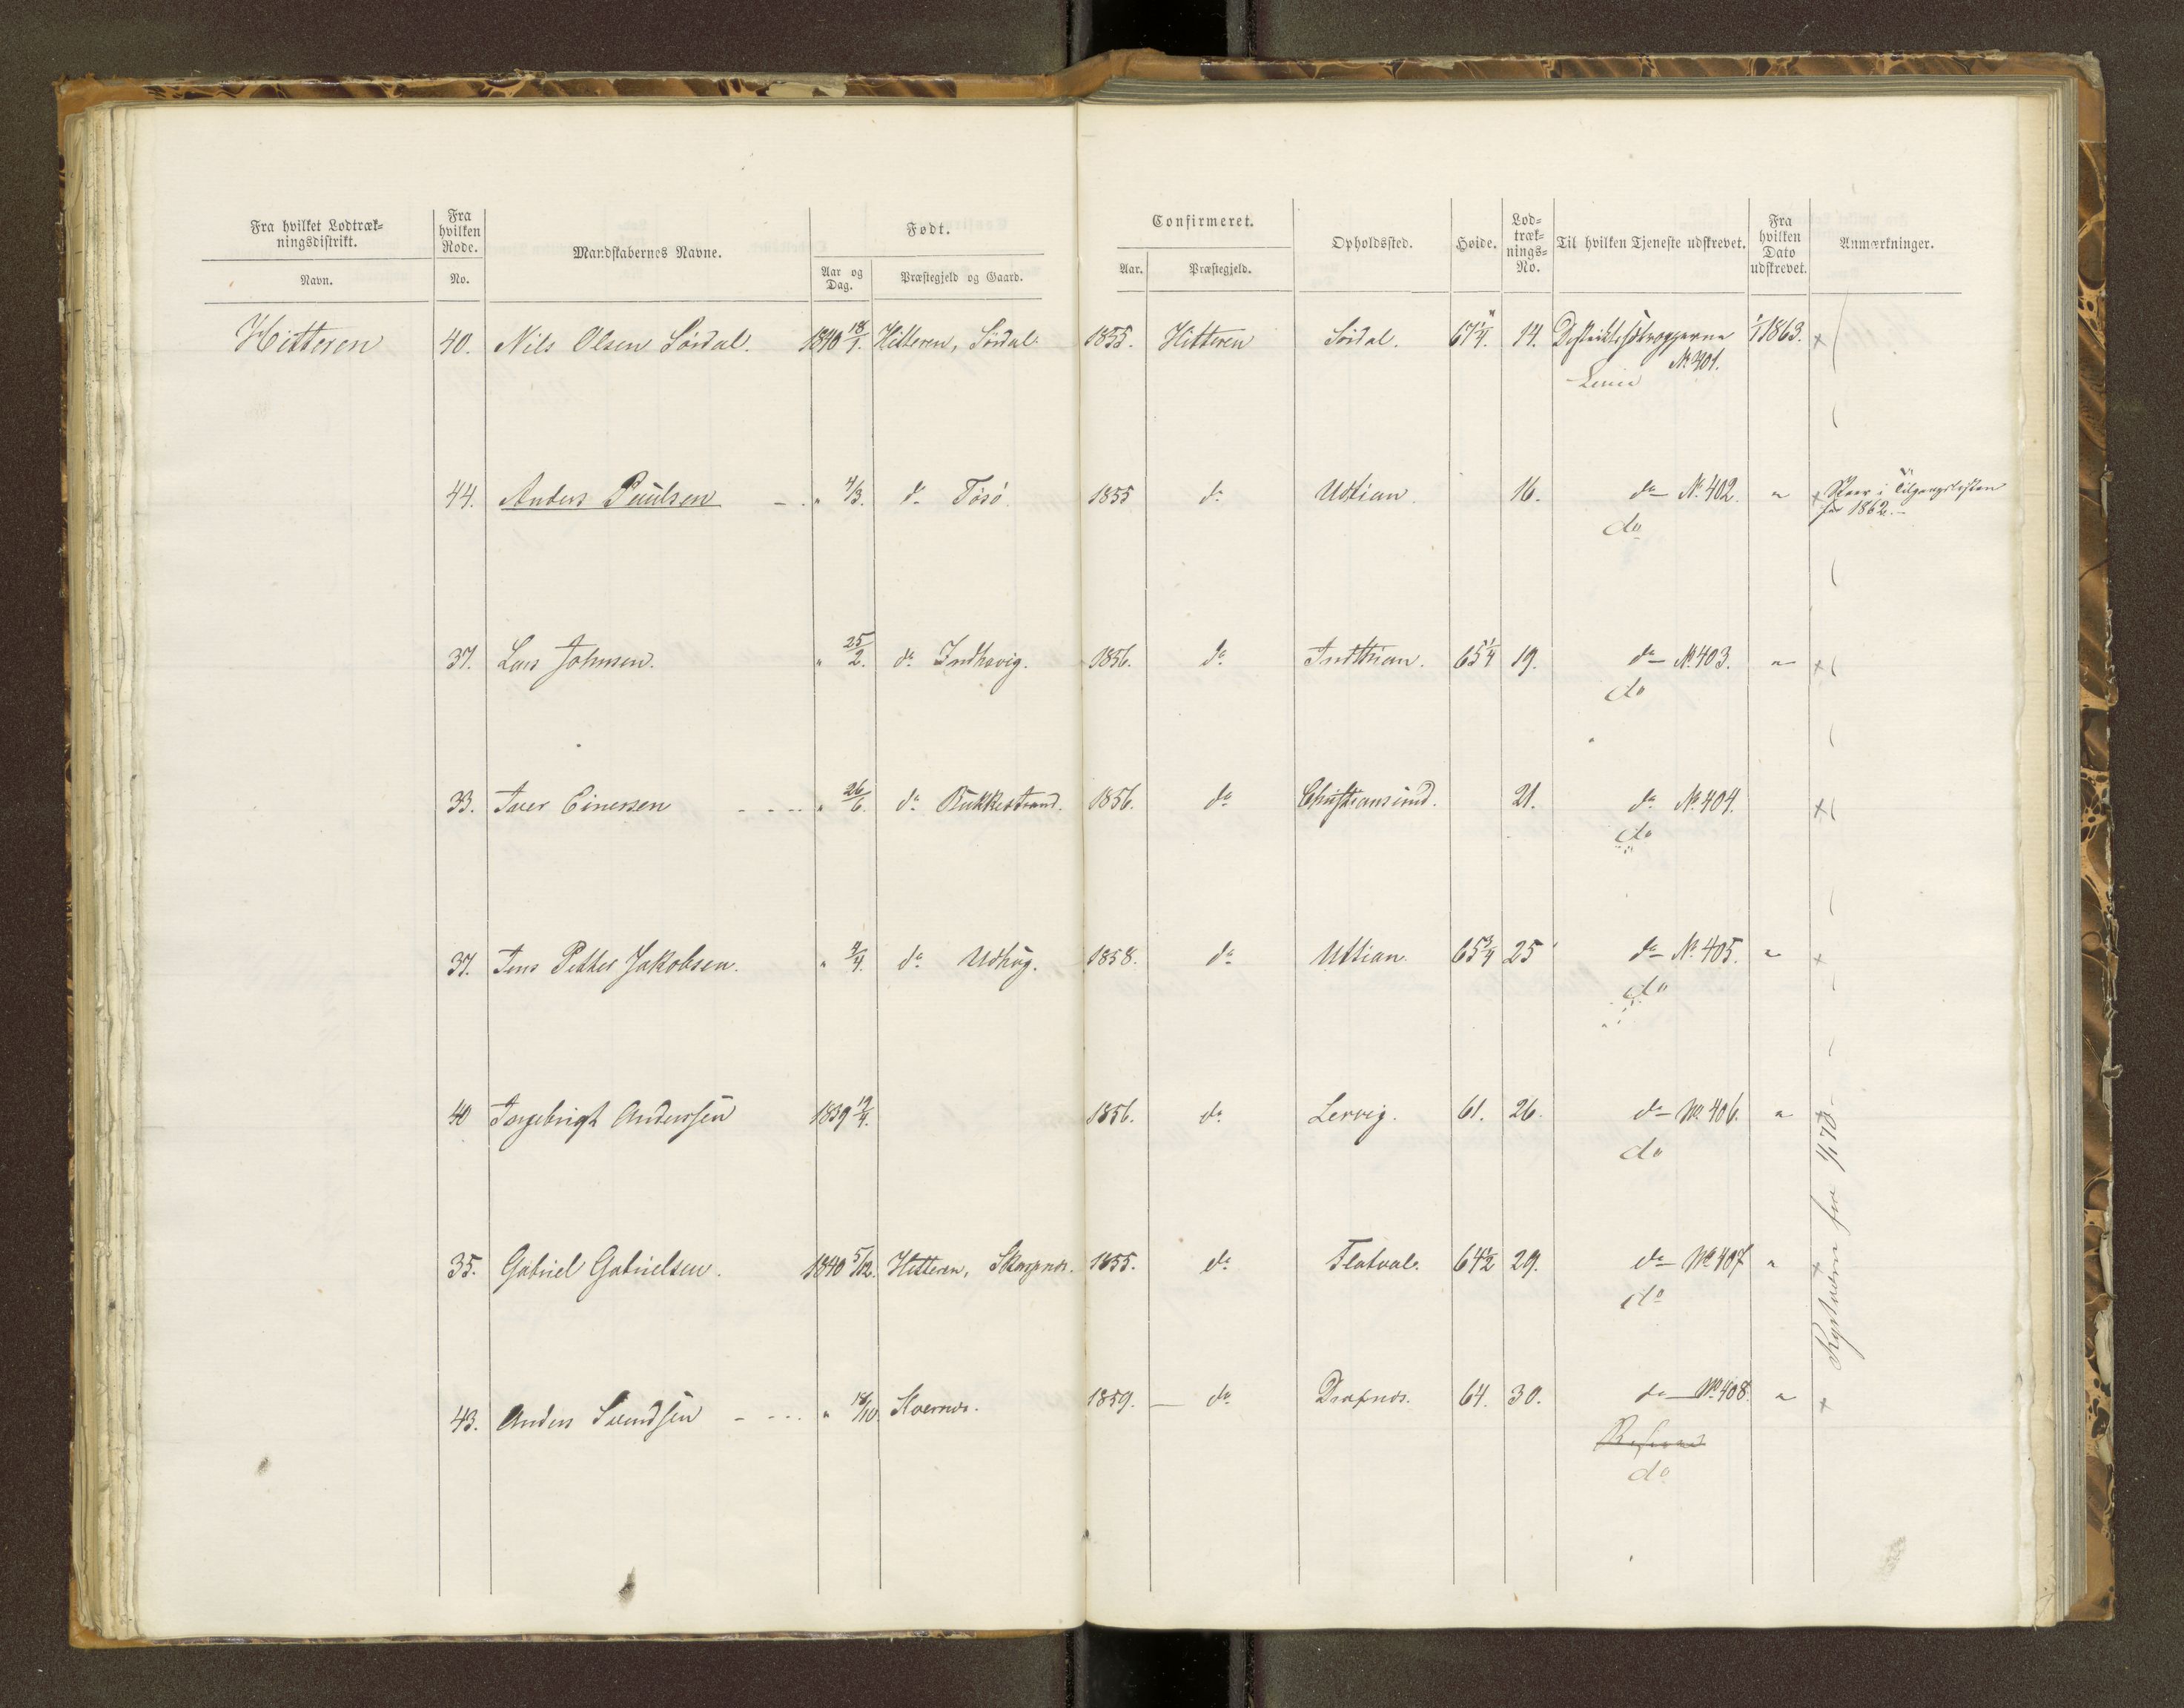 Fra hvilket Lodtræk-
ningsdistrikt.
Navn.
Fra
hvilken
Rode.
No.
Mandskabernes Navne.
Født.
Aar og
Dag.
Præstegjeld og Gaard.
Confirmeret.
Aar.
Præstegjeld.
Opholdssted.
Høide.
Lod-
træk-
nings-
No.
Til hvilken Tjeneste udskrevet.
Fra
hvilken
Dato
udskrevet.
Anmærkninger.
Hitteren 40. Nils Olsen Sördal. 1840 18/1. Hitteren, Sördal. 1855. Hitteren Sördal. 67 1/4" 14. Distriktstropperne 1/1 1863. +
No 401.
Linie
44. Anders Paulsen " 4/3. do Tösö. 1855 do Udtian. 16. do No 402. " + Staar i Tilgangslisten
for 1862.
do
37. Lars Johnsen. " 25/2. do Indhavig. 1856. do Indtian. 65 1/4 19. do No 403. " +
do
33. Iver Einersen " 26/6. do Bukkestrand. 1856. do Christiansund. 21. do No 404. +
do
37. Jens Petter Jakobsen. " 4/4. do Udhug. 1858. do Uttian. 65 3/4 25 do No 405. " +
do
40 Ingebrigt Anderssen 1839 19/4. 1856. do Lervig. 61. 26. do No 406. " +
do
35. Gabriel Gabrielsen. 1840 5/12. Hitteren, 1855. do Flatval. 64 1/2 29. do No 407 " +
do
43. Anders Svendsen " 18/10 1859. do 64. 30. do No 408. " +
do
Kystværn fra 1/1 70